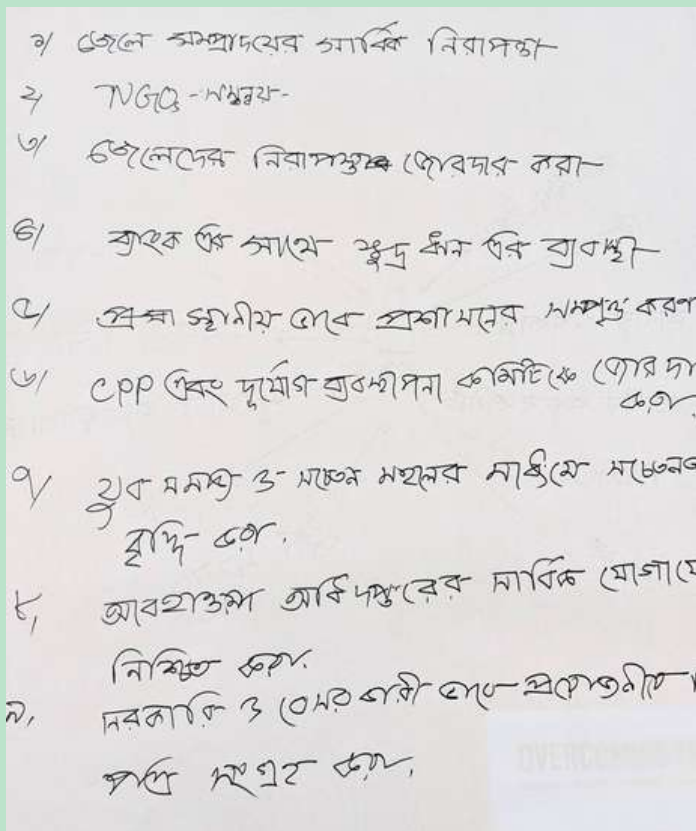 ১/ জেলে সম্প্রদায়ের সার্বিক নিরাপত্তা
২/ NGOs - সমন্বয় -
৩/ জেলেদের নিরাপত্তা জোরদার করা
৪/ ব্যাংক এর সাথে ক্ষুদ্র ঋন এর ব্যবস্থা
৫/ স্থানীয় ভাবে প্রশাসনের সম্পৃক্ত করণ
৬/ CPP এবং দূর্যোগ ব্যবস্থাপনা কমিটিকে জোরদা
করা
৭/ যুব সমাজ ও সচেতন মহলের মাধ্যমে সচেতনত
বৃদ্ধি করা.
৮, আবহাওয়া অধিদপ্তরের সার্বিক যোগাযো
নিশ্চিত করা.
৯, সরকারি ও বেসরকারী ভাবে প্রয়োজনীয়
পাতি সংগ্রহ করা.